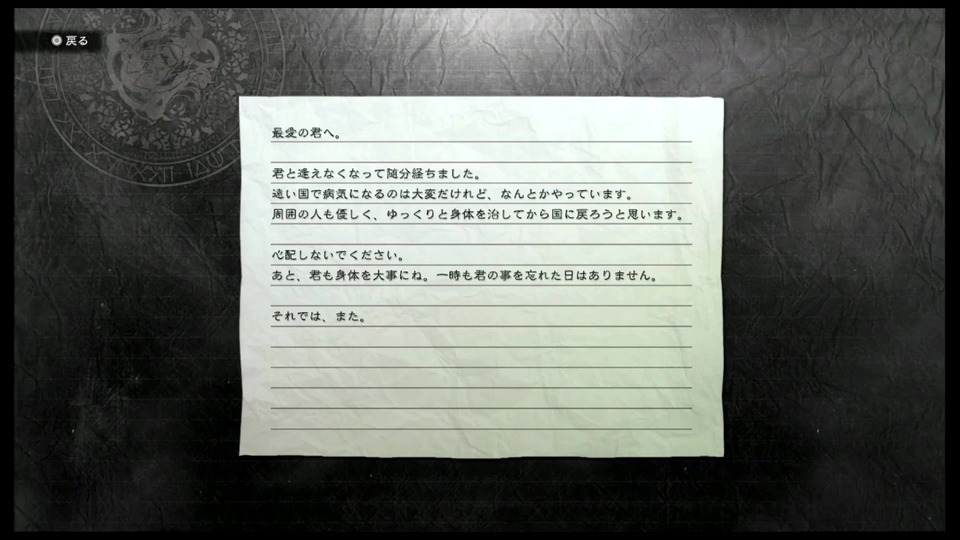 戻る
最愛の君へ。
君と逢えなくなって随分経ちました。
遠い国で病気になるのは大変だけれど、なんとかやっています。
周囲の人も優しく、ゆっくりと身体を治してから国に戻ろうと思います。
心配しないでください。
あと、君も身体を大事にね。一時も君の事を忘れた日はありません。
それでは、また。